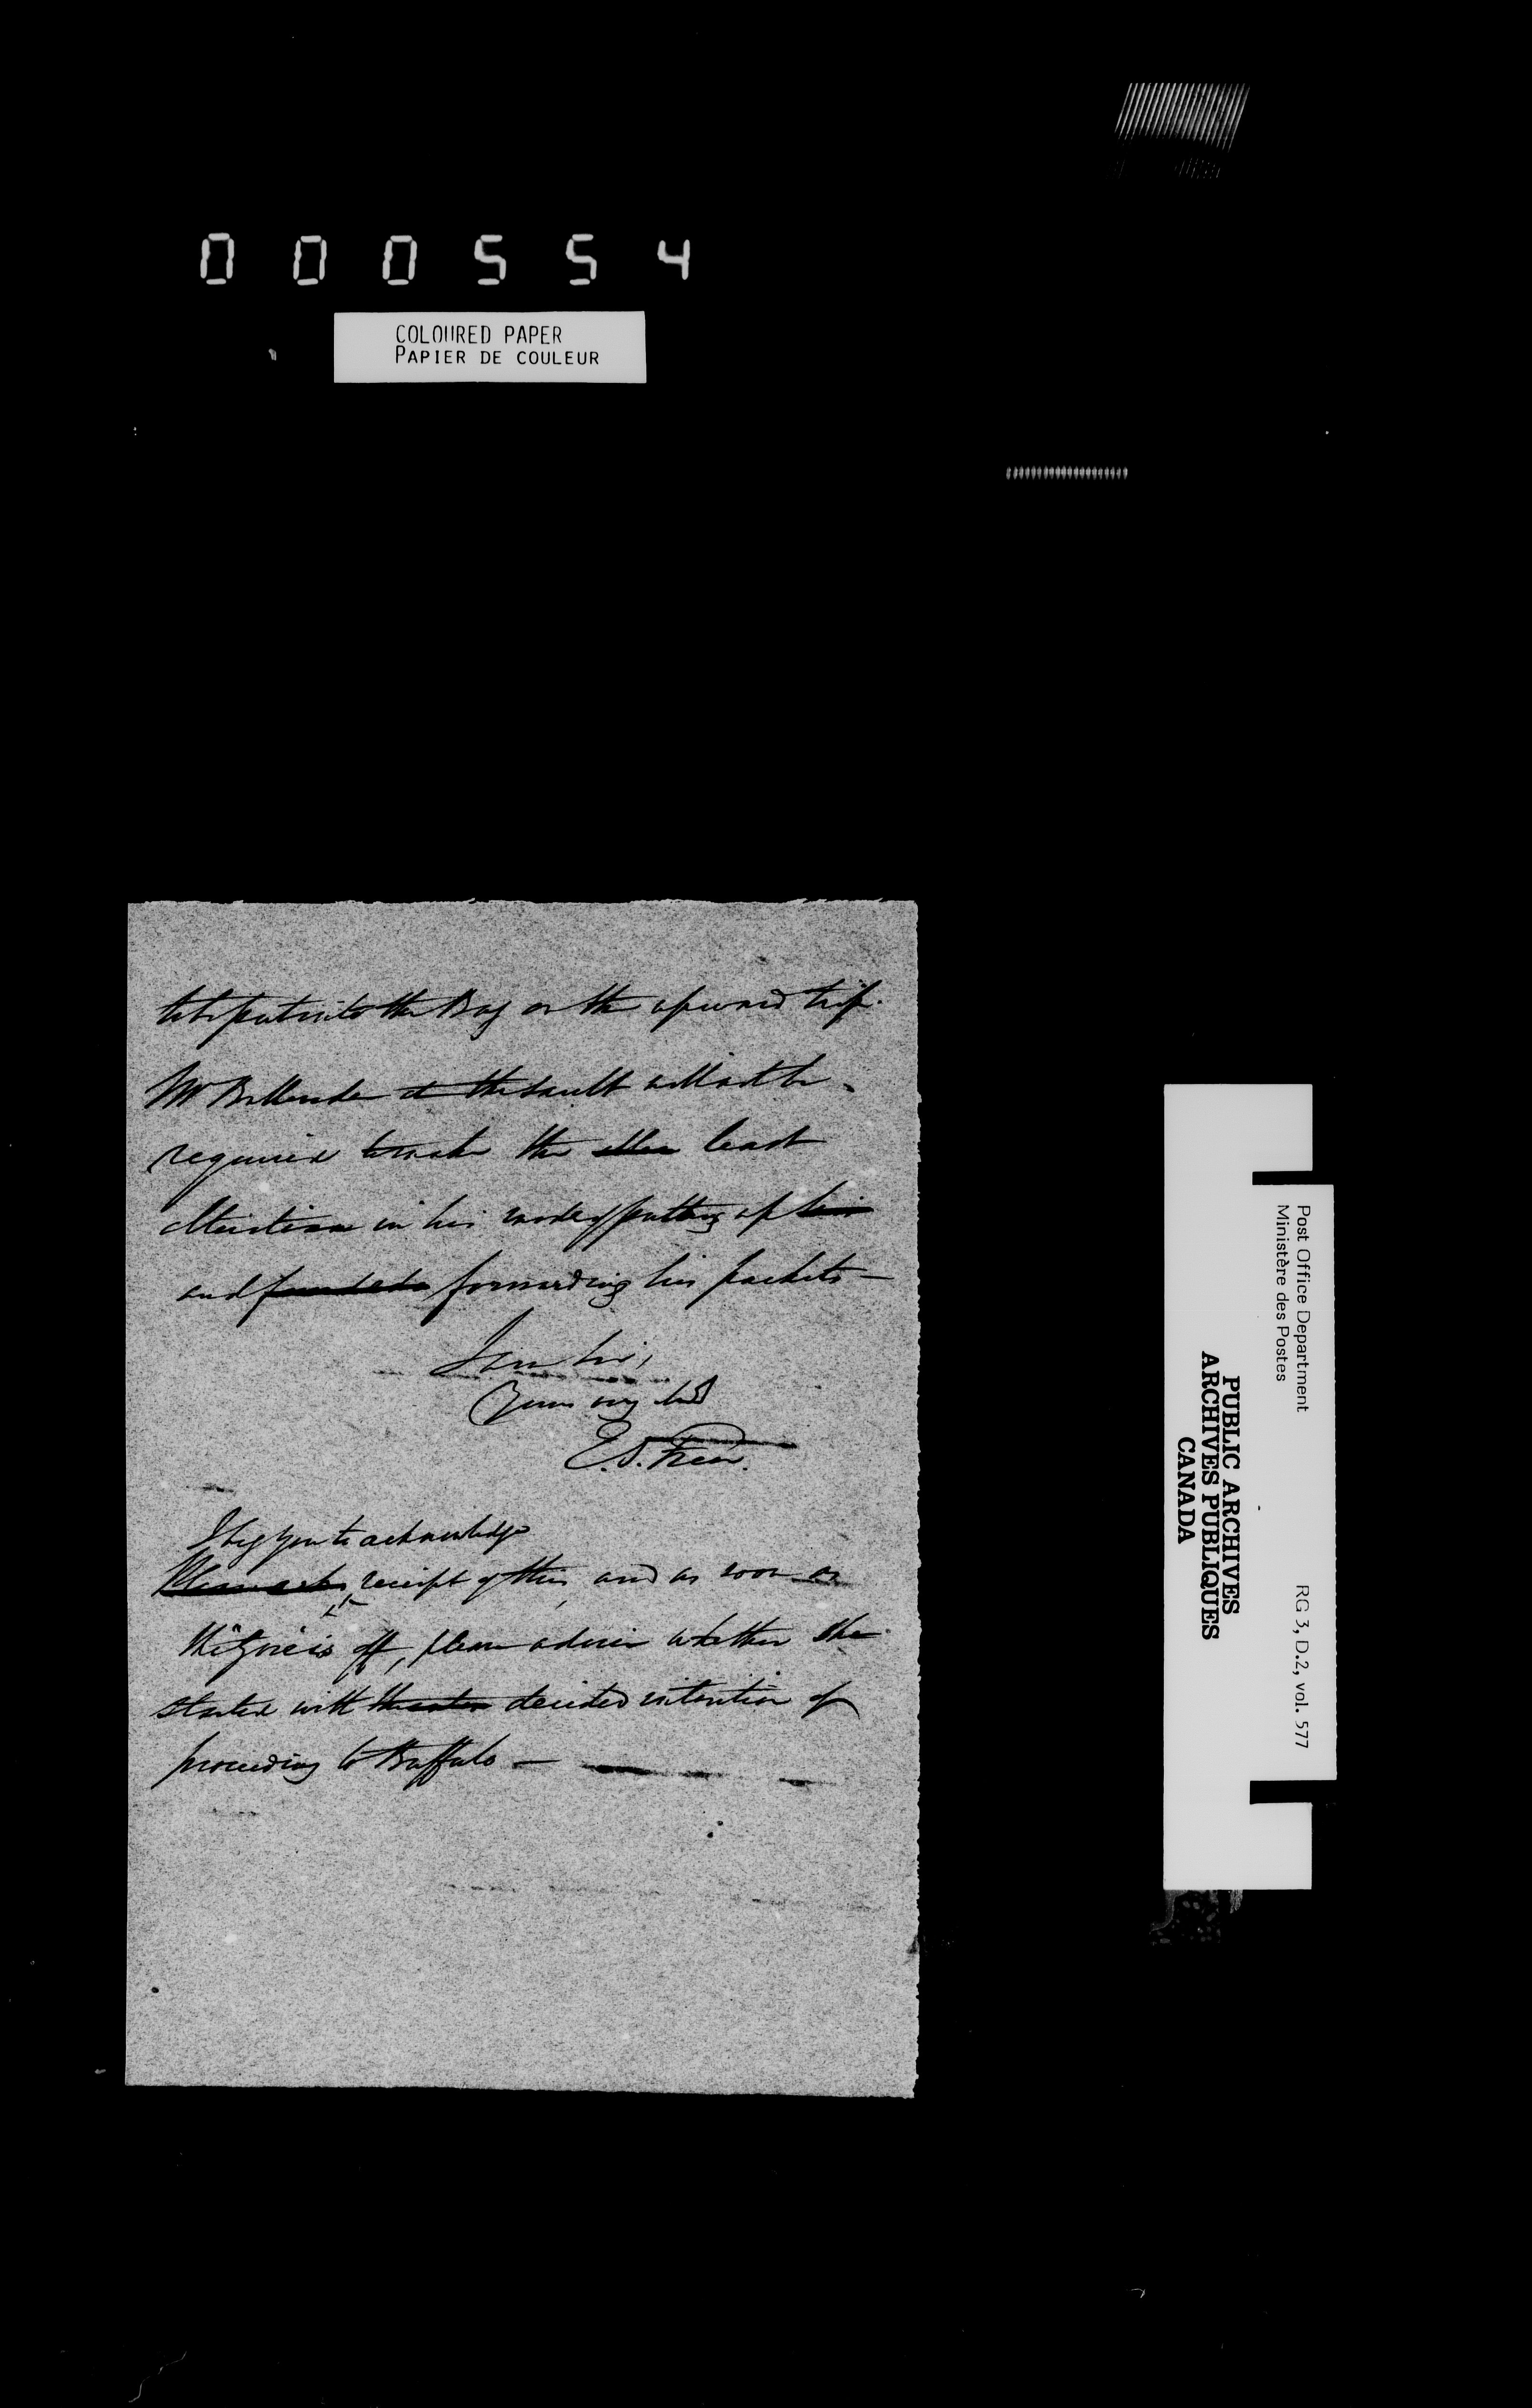 000554
COLOURED PAPER
PAPIER DE COULEUR
to be put into the Bag on the upward trip.
Mr at the Sault will not be
required to make the least
alteration in his mode of putting up his
and forwarding his packets —
I am Sir,
Yours
E.S. Freer.
I beg you to acknowledge
receipt of this, and as soon as
the is off, please advise whether she
started with decided intention of
proceeding to Buffalo —
Post Office Department
Ministère des Postes
RG 3, D.2, vol. 577
PUBLIC ARCHIVES
ARCHIVES PUBLIQUES
CANADA